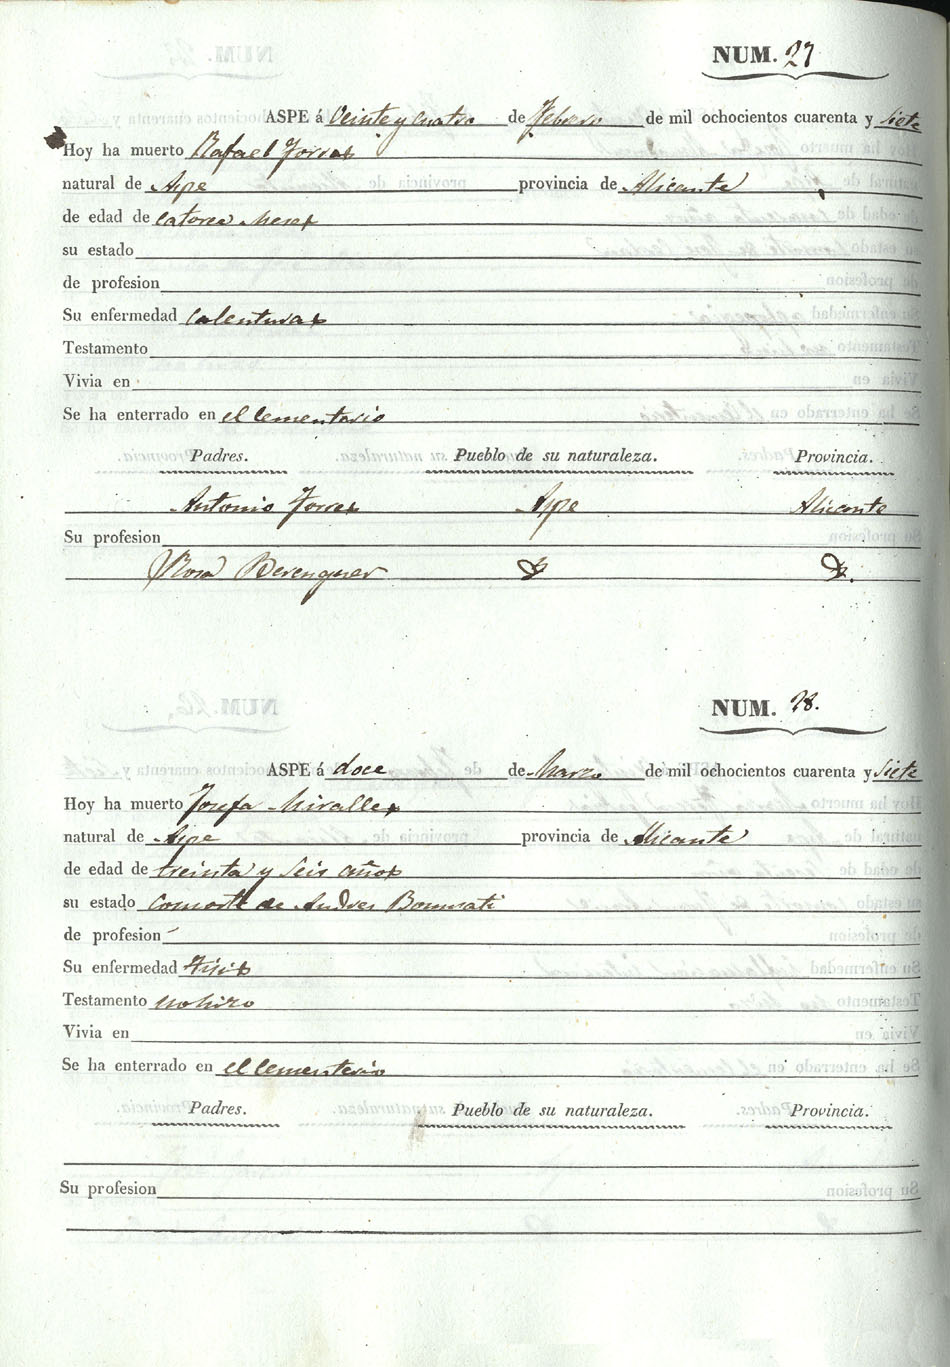 NUM. 27
ASPE á Veinte y cuatro de Febrero de mil ochocientos cuarenta y siete
Hoy ha muerto Rafael Torres
natural de Aspe provincia de Alicante
de edad de catorce meses
su estado
de profesion
Su enfermedad Calenturas
Testamento
Vivia en
Se ha enterrado en el Cementerio
Padres. Pueblo de su naturaleza. Provincia.
Antonio Torres Aspe Alicante
Su profesion
Rosa Berenguer
NUM. 28.
ASPE á doce de Marzo de mil ochocientos cuarenta y siete
Hoy ha muerto Josefa Miralles
natural de Aspe provincia de Alicante
de edad de treinta y seis años
su estado Consorte de Andres Bonmati
de profesion
Su enfermedad Tisis
Testamento no hizo
Vivia en
Se ha enterrado en el Cementerio
Padres. Pueblo de su naturaleza. Provincia.
Su profesion